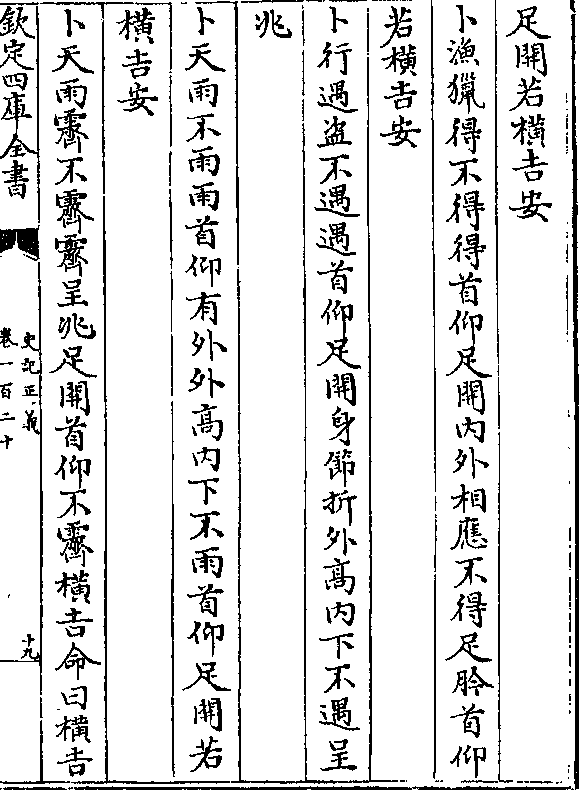 足開若橫吉安
卜漁獵得不得得首仰足開内外相應不得足肣首仰
若橫吉安
卜行遇盗不遇遇首仰足開身節折外髙内下不遇呈
兆
卜天雨不雨雨首仰有外外髙内下不雨首仰足開若
橫吉安
卜天雨霽不霽霽呈兆足開首仰不霽橫吉命曰橫吉
欽定四庫全書
史記正義
卷一百二十
十九